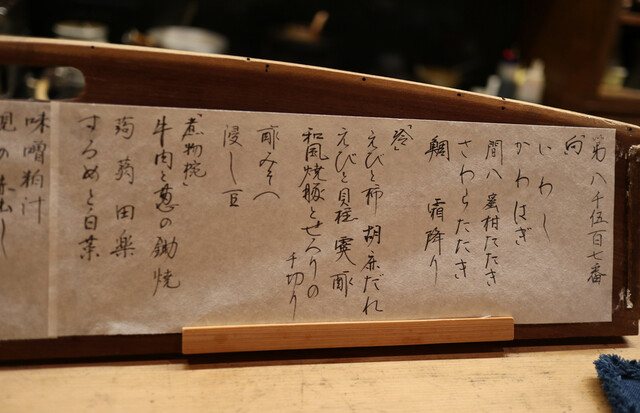 第八千伍百七番
「向」
いわし
かわはぎ
間八 蜜柑たたき
さわらたたき
鯛 霜降り
「冷」
えびと柿 胡麻だれ
えびと貝柱 黄酢
和風焼豚とせろりの
千切り
酢みそへ
浸し豆
「煮物椀」
牛肉と葱の鋤焼
蒟蒻田楽
するめと白菜
味噌粕汁